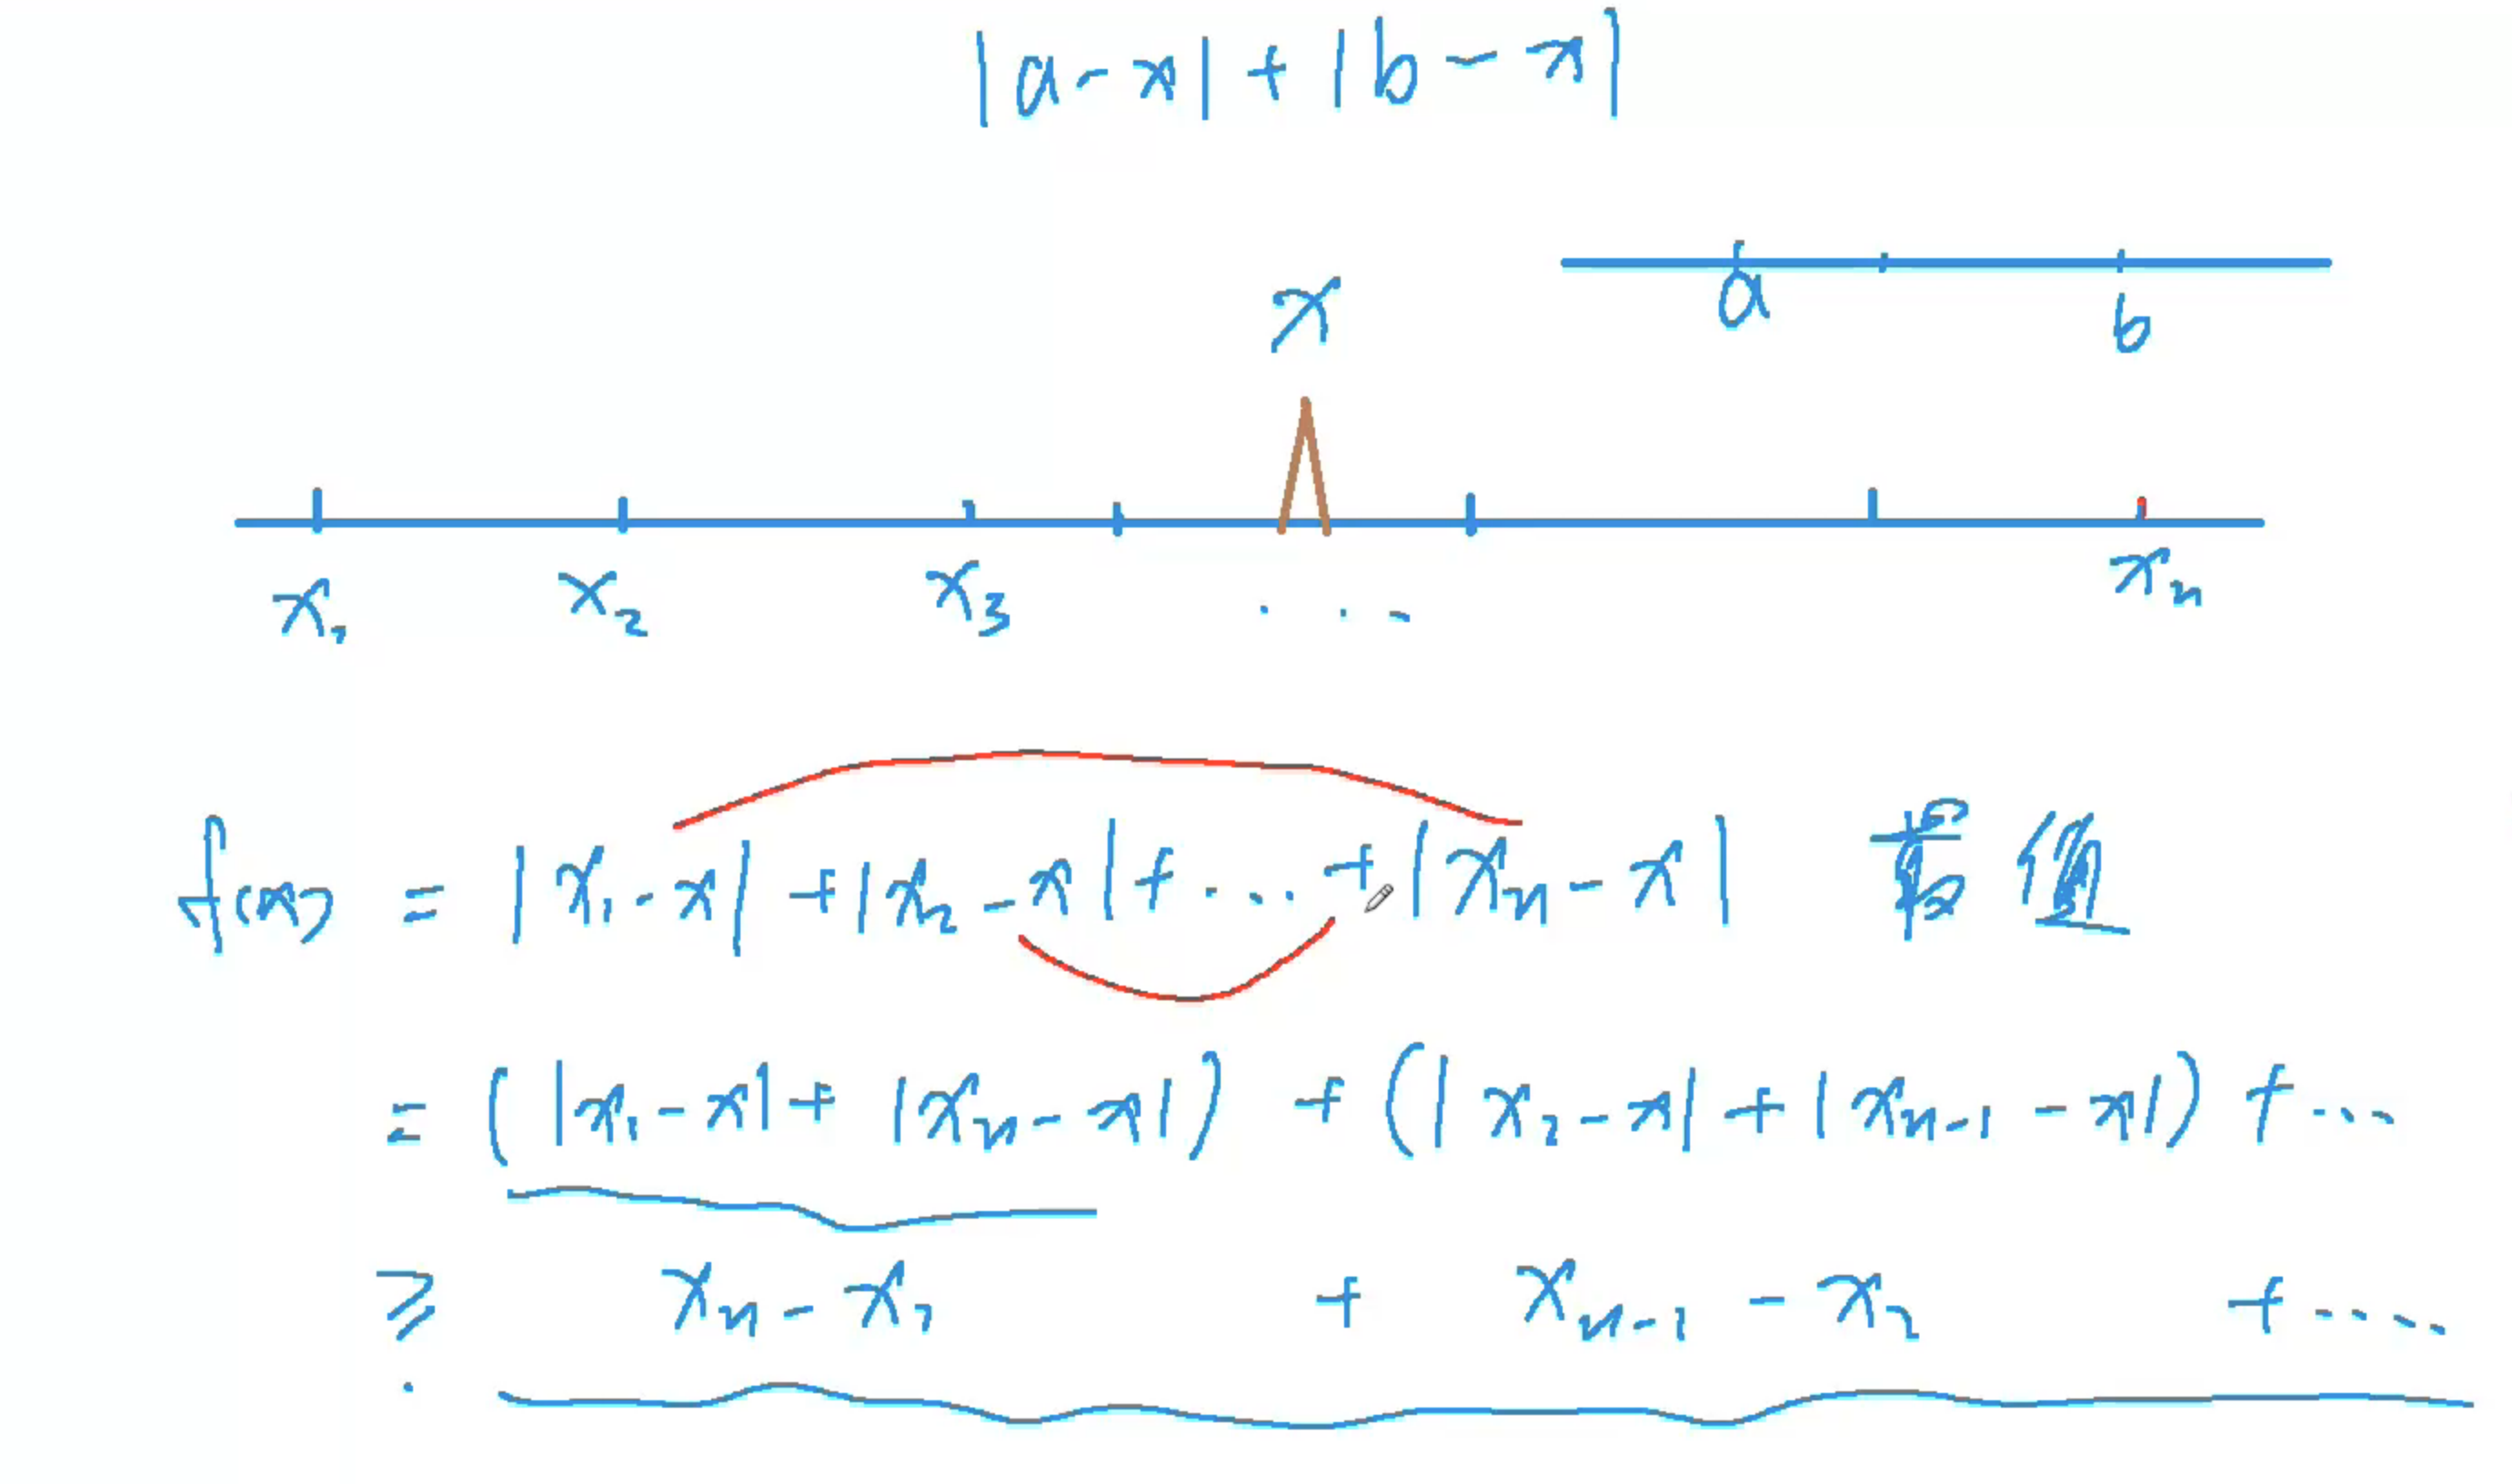 |a-x| + |b-x|
x
a b
x₁ x₂ x₃ ... xₙ
f(x) = |x₁-x| + |x₂-x| + ... + |xₙ-x|
= (|x₁-x| + |xₙ-x|) + (|x₂-x| + |xₙ₋₁-x|) + ...
≥ xₙ-x₁ + xₙ₋₁-x₂ + ....